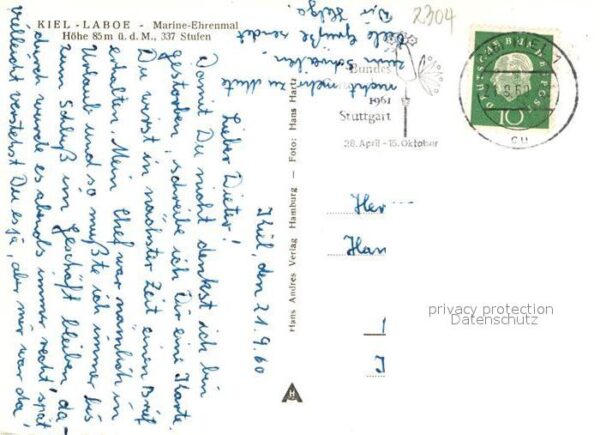 KIEL - LABOE - Marine-Ehrenmal
Höhe 85 m ü. d. M., 337 Stufen
Kiel, den 21.9.60
Lieber Dieter!
Damit Du nicht denkst ich bin
gestorben, schreibe ich Dir eine Karte.
Du wirst in nächster Zeit einen Brief
erhalten. Mein Chef war nämlich in
Urlaub und so mußte ich immer bis
zum Schluß im Geschäft bleiben, da-
durch wurde es abends immer recht spät
vielleicht verstehst Du es ja, aber mir war da
nicht mehr zu Mute
zum Schreiben.
Viele Grüße sendet
Dir Helga.
Hans Andres Verlag Hamburg — Foto: Hans Hartz
H
2304
Bundes
1961
Stuttgart
28. April - 15. Oktober
DEUTSCHE BUNDESPOST
10
KIEL 1
Her
Han
privacy protection
Datenschutz